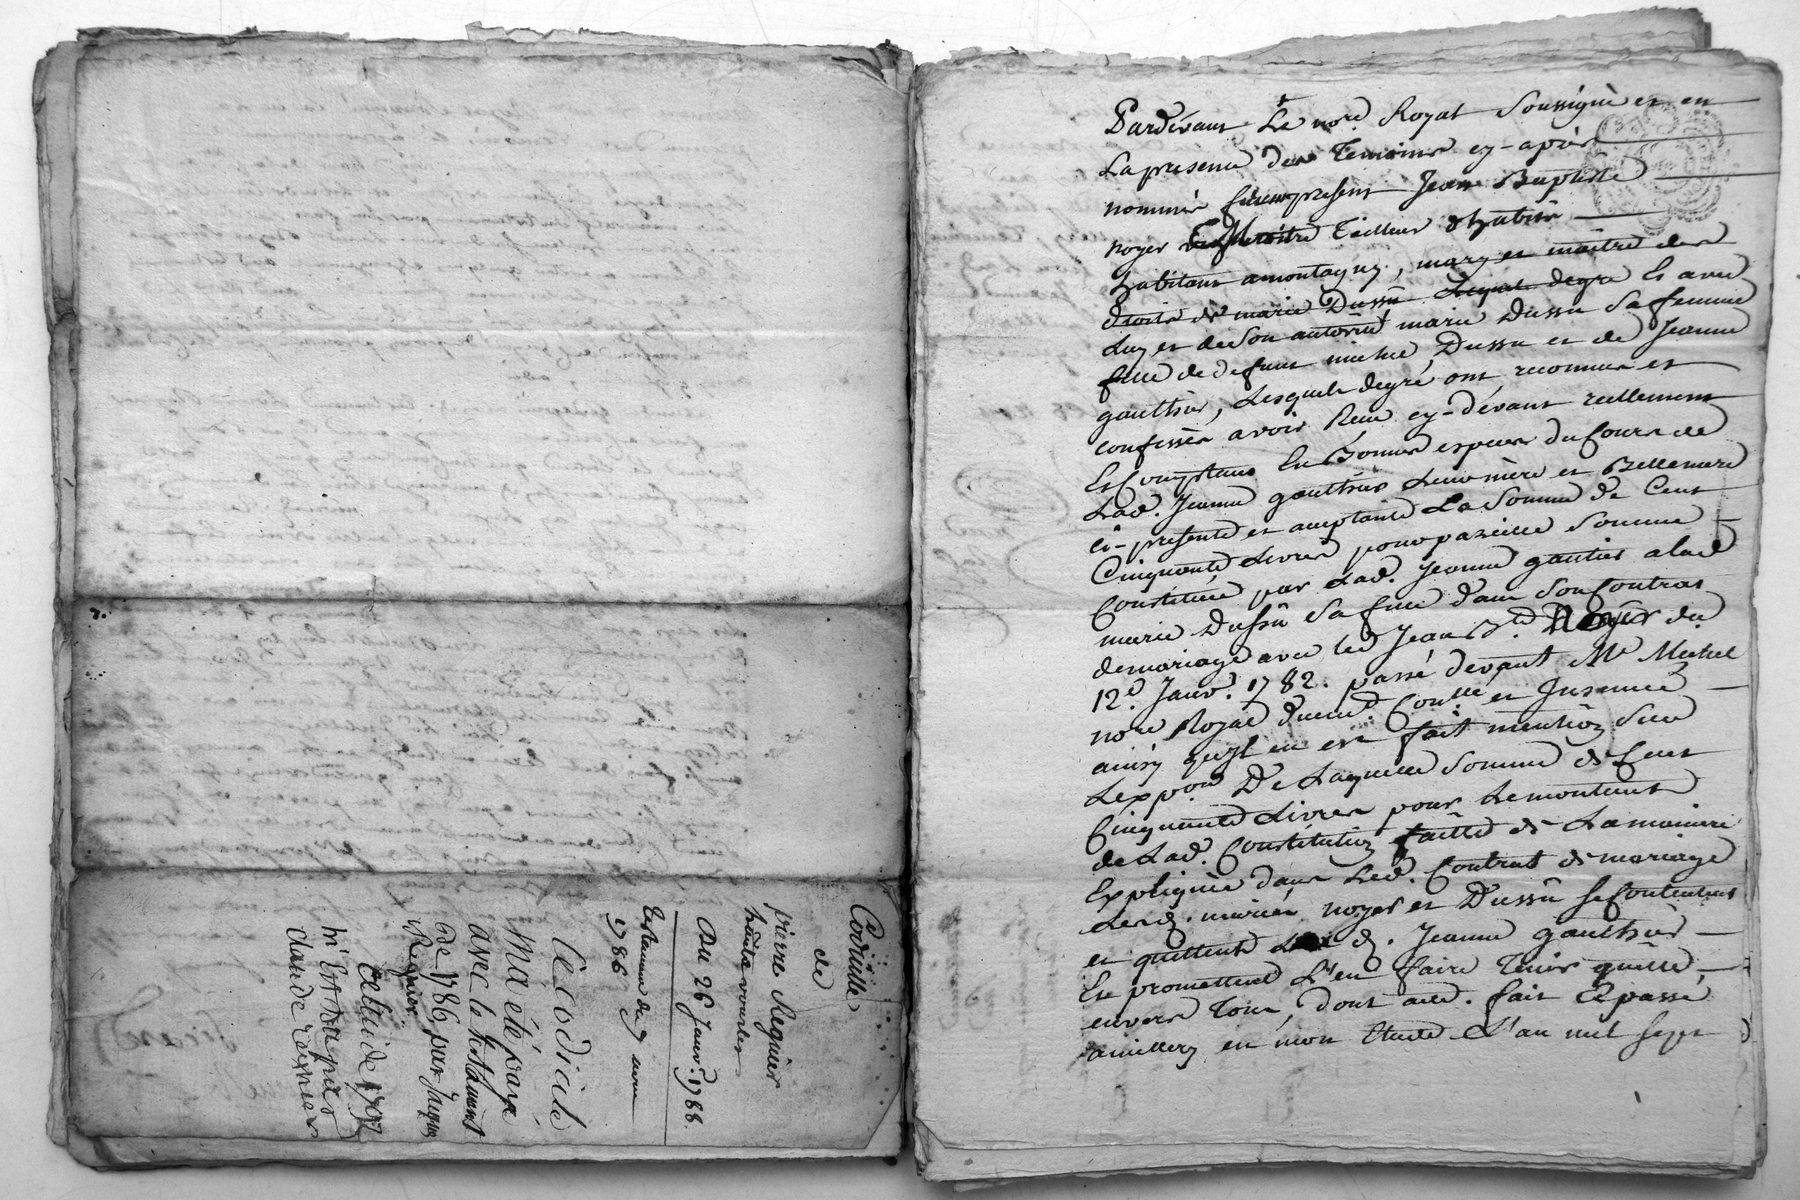 Codicille
de
pierre Regnier
Du 26 Janv. 1788.
testament du 9 avril
1786
Ce codicile
ma été payé
avec le testament
de 1786 par Jacques
Regnier
Celui de 1792
m'est dû par
claude
Pardevant Le nore. Royal Soussigné et en
La presence des Temoins cy-après
nommés furent present Jean Baptiste
noyer Tailleur d'habits
habitant a montagny, mary et maitre des
droits de marie Dussu Lequel degre Et avec
Luy et de Son autorité marie Dussu Sa femme
fille de defunt michel Dussu et de Jeanne
gauthier, Lesquels degré ont reconnus et
confessés avoir Recu cy-devant réellement
Et Comptant En Bonnes especes du Cours de
Lad. Jeanne gauthier Leur mère et Bellemere
ci-presente et acceptante La Somme de Cent
Cinquante Livres pour pareille Somme
Constituée par Lad. Jeanne gautier a lad
marie Dussu Sa fille dans Son Contrat
demariage avec led Jean Bte. Noyer du
12e. Janv. 1782. passé devant Me Michel
nore Royal Conllé et Insinué
ainsy qu'Il en est fait mention Sur
Lexpon De Laquelle Somme de Cent
Cinquante Livres pour Le montant
de Lad. Constitution faitte de La maniere
Expliquée dans Led. Contrat de mariage
Lesd. mariés noyer et Dussu se Contentent
et quittent Lad. Jeanne gauthier
Et promettent L'en faire Tenir quitte
envers Tous, dont acte. fait Et passé
amillery en mon Etude L'an mil Sept